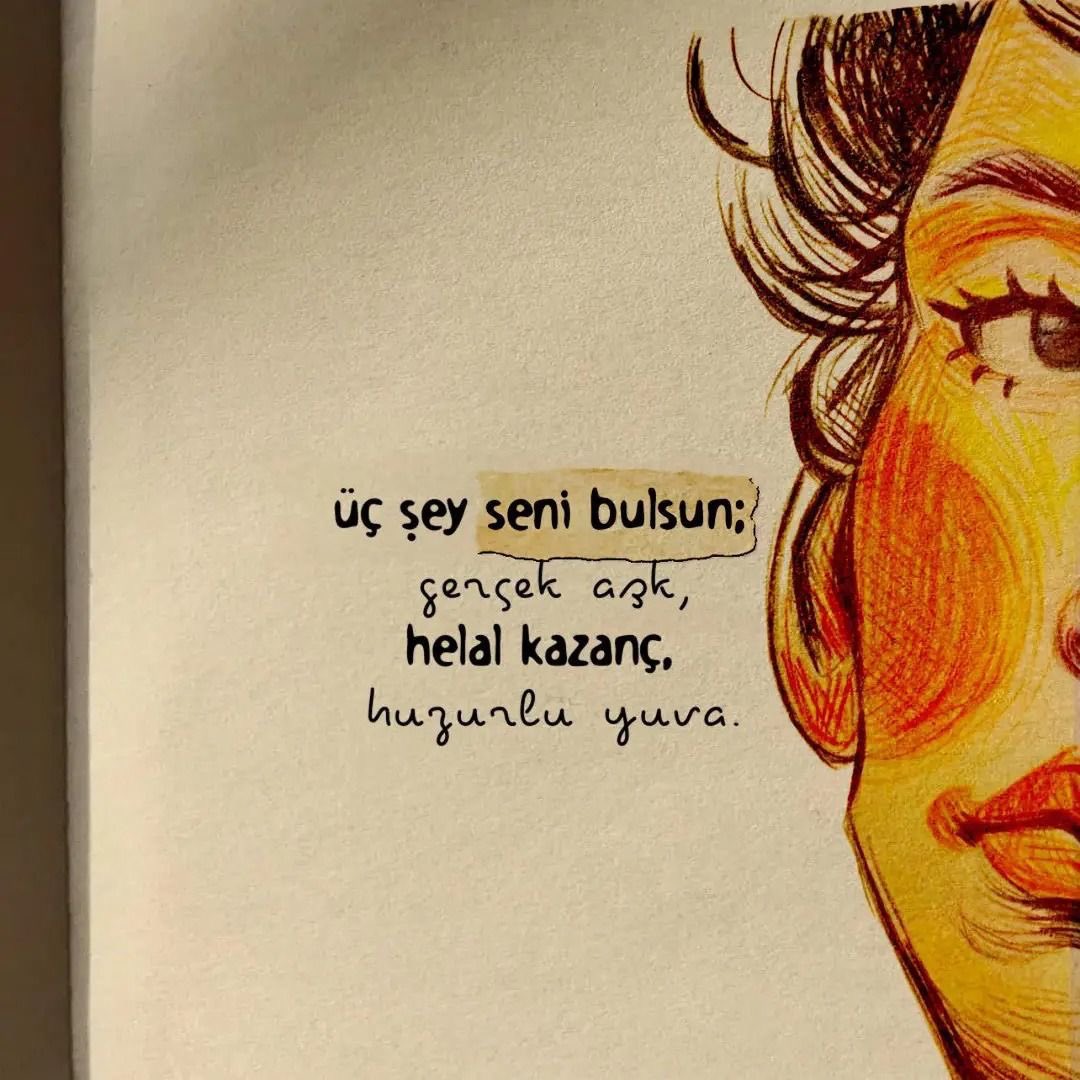 üç şey seni bulsun;
gerçek aşk,
helal kazanç,
huzurlu yuva.